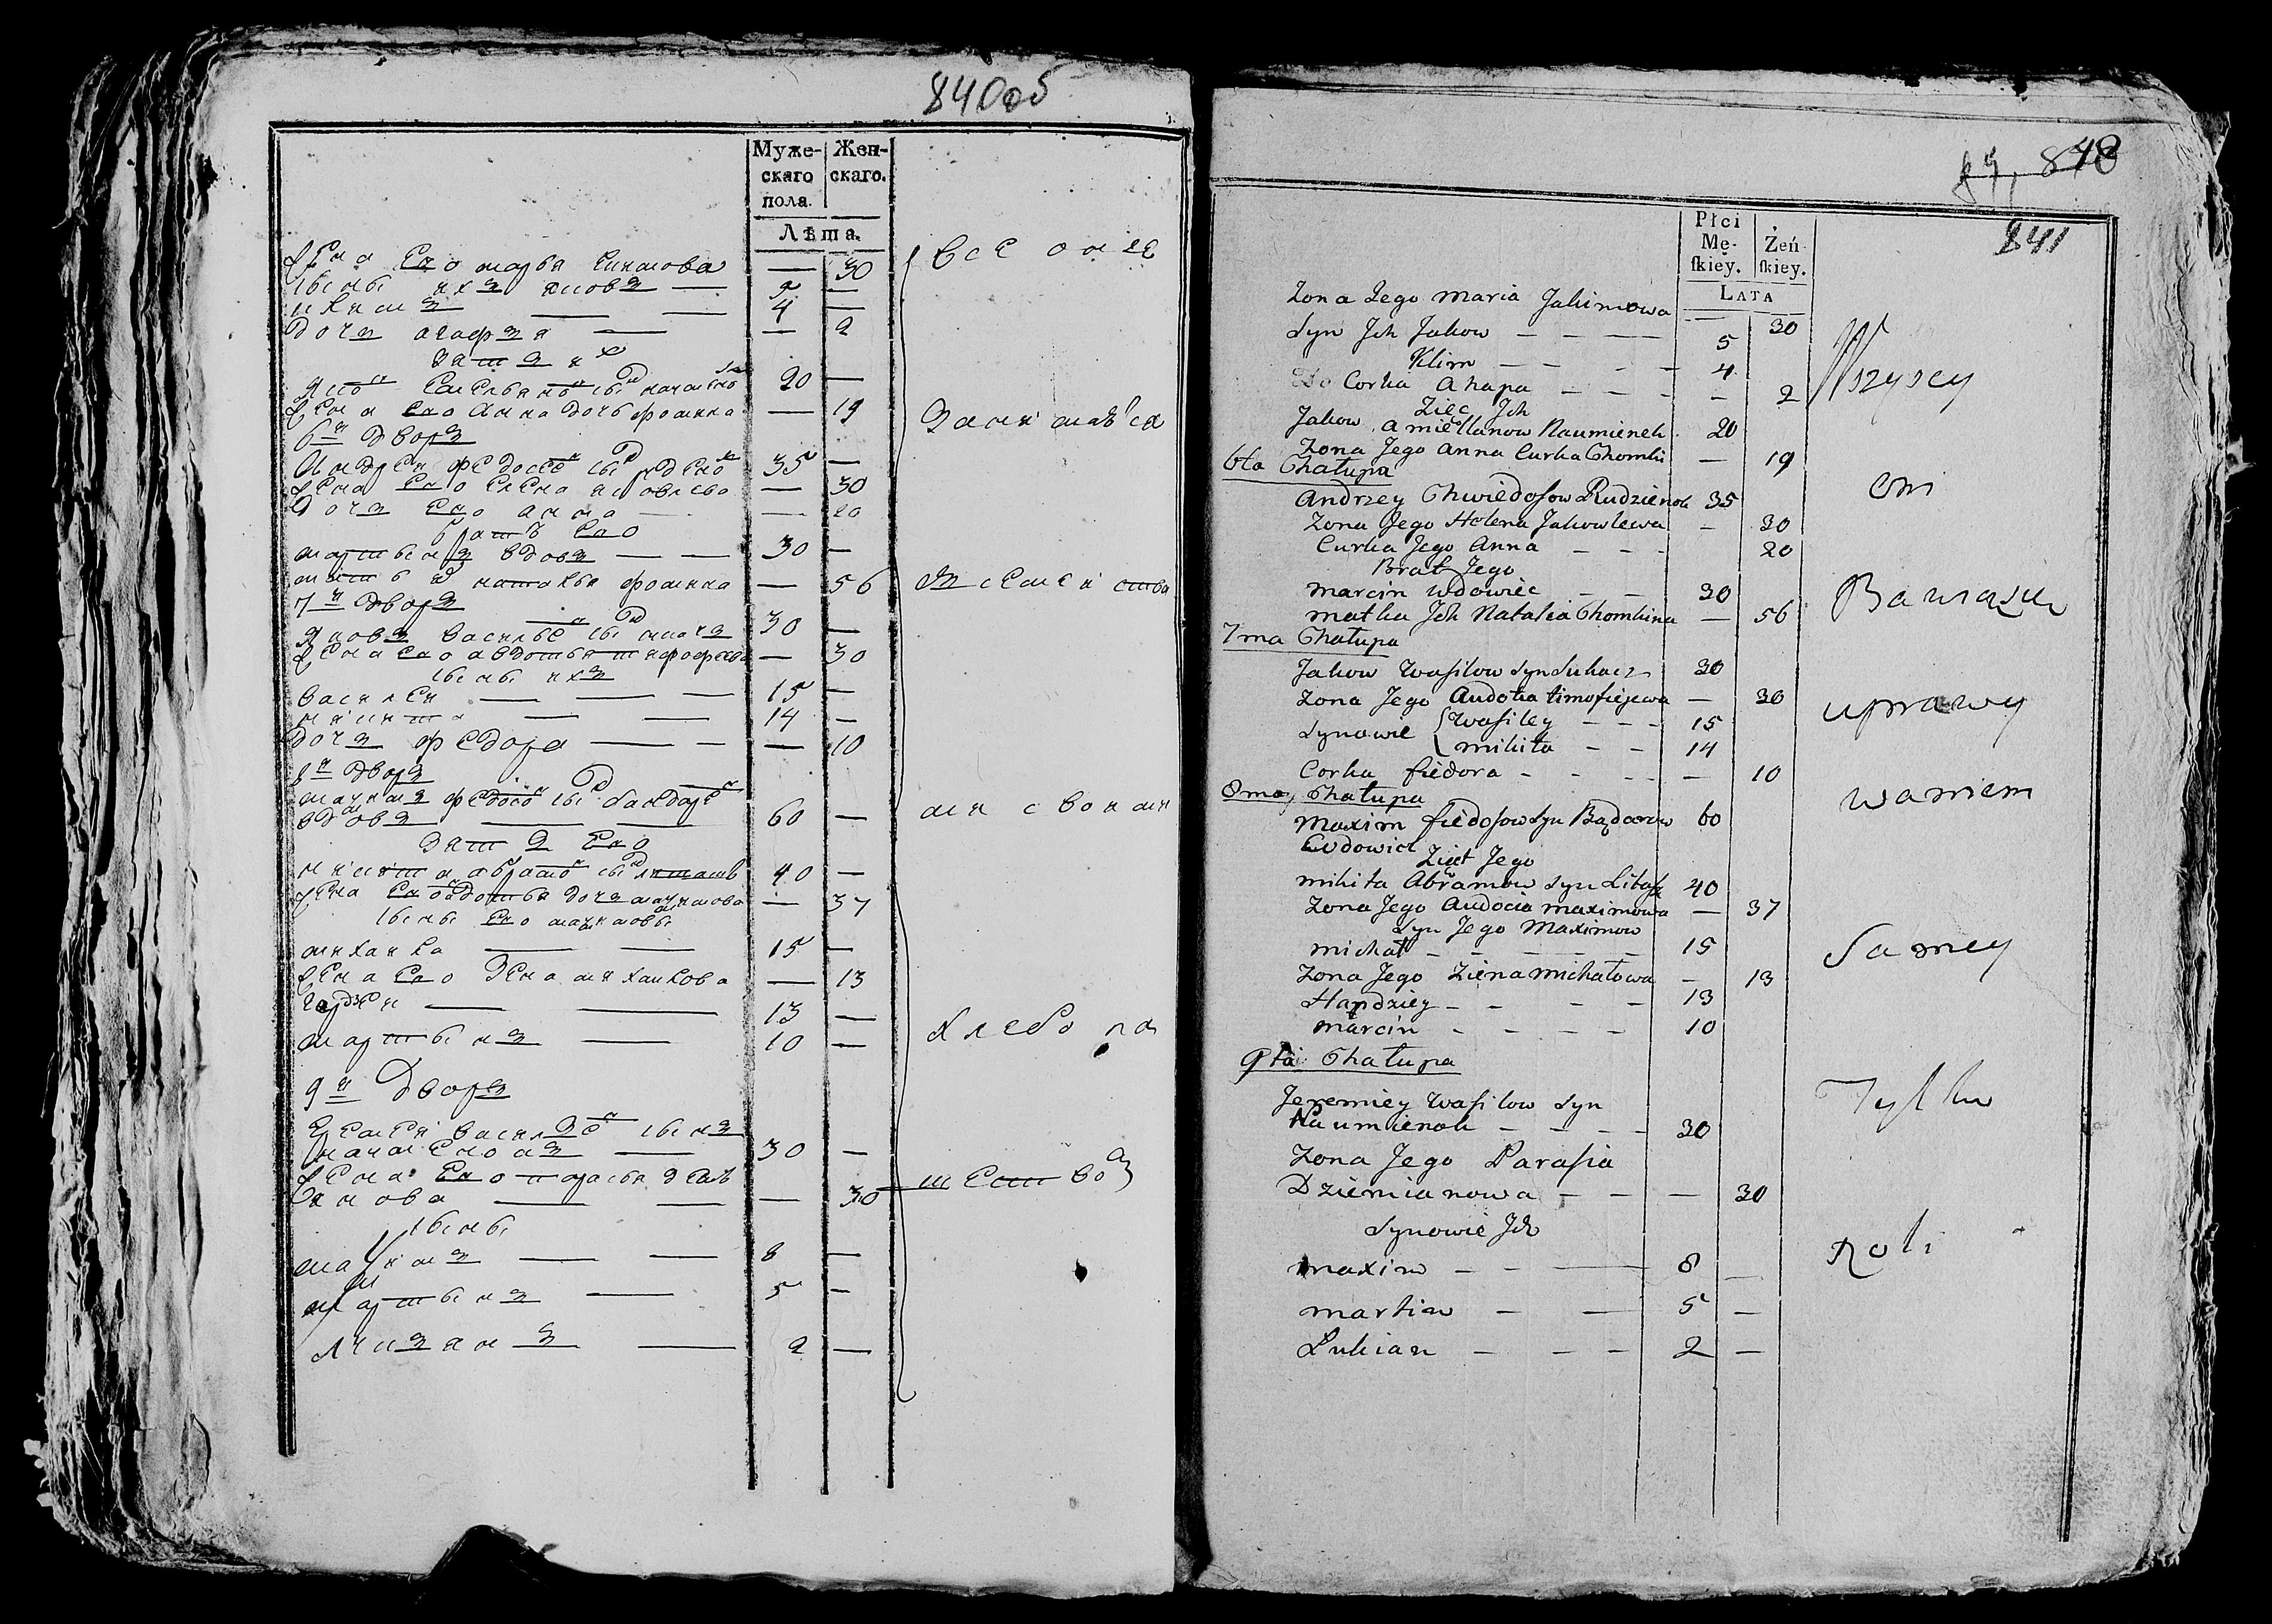 840об
Муже-
скаго
пола.
Жен-
скаго.
Лѣта.
жена Его марья Екимова — 30
сыны ихъ яковъ — 5 —
климъ — — 4 —
дочъ агафъя — — 2
зятъ их
20 —
жена Его Анна дочь фомина — 19
6й дворъ
35 —
жена Его Елена яковлева — 30
дочъ Его анна — — 20
братъ Его
мартынъ вдовъ — — 30 —
мать их наталья фомина — 56
7й дворъ
30 —
жена Его авдотья тимофеева — 30
сыны ихъ
василеи — — — 15 —
никита — — 14 —
дочъ федора — — — 10
8й дворъ
вдовъ — — 60 —
зятъ Его
40 —
жена Его авдотья дочъ максимова — 37
сыны Его максимовы
михаила — — 15 —
жена Его зена михаилова — 13
13 —
мартынъ — 10 —
9й дворъ
Еремеи василъев сынъ
науменокъ — 30 —
жена Его парасья демь
янова — — — 30
сыны
максимъ — — 8 —
мартынъ — 5 —
лукъянъ — 2 —
все оне
занимаются
въ семеи ства
ми своими
хлебо па
шествомъ
841
Płci
Mę-
skiey.
Żeń-
skiey.
LATA
Zona Jego maria Jakimowa — 30
Syn Jch Jakow — — — 5
Klim — — — — 4
Corka Ahapa — — — — 2
Zięc Jch
Jakow amiellanow Naumienek 20
Zona Jego Anna Curka Chomki — 19
6ta Chałupa
Andrzey Chwiedosow Rudzienok 35
Zona Jego Helena Jakowlewa — 30
Curka Jego Anna — — — 20
Brat Jego
marcin wdowiec — — 30
matka Jch Natalia Chomkina — 56
7ma Chałupa
Jakow Wasilow syn Sukacz 30
Zona Jego Audotia timofiejewa — 30
Synowie { Wasiley — — — 15
mikita — — 14
Corka fiedora — — — — 10
8ma Chałupa
Maxim fiedosow syn Bądarow 60
Wdowiec
Zięt Jego
mikita Abramow syn Litasz 40
Zona Jego Audocia maximowa — 37
Syn Jego Maximow
michał — — — — — 15
Zona Jego Ziena michałowa — 13
Handziey — — — — 13
marcin — — — — 10
9ta Chałupa
Jeremiey Wasilow syn
Naumienok — — — — 30
Zona Jego Parasia
Dziemianowa — — — 30
Synowie Jch
maxim — — — 8 —
martin — — 5 —
Lukian — — — 2 —
Wszyscy
oni
Bawią się
uprawy
waniem
Samey
Tylko
Roli